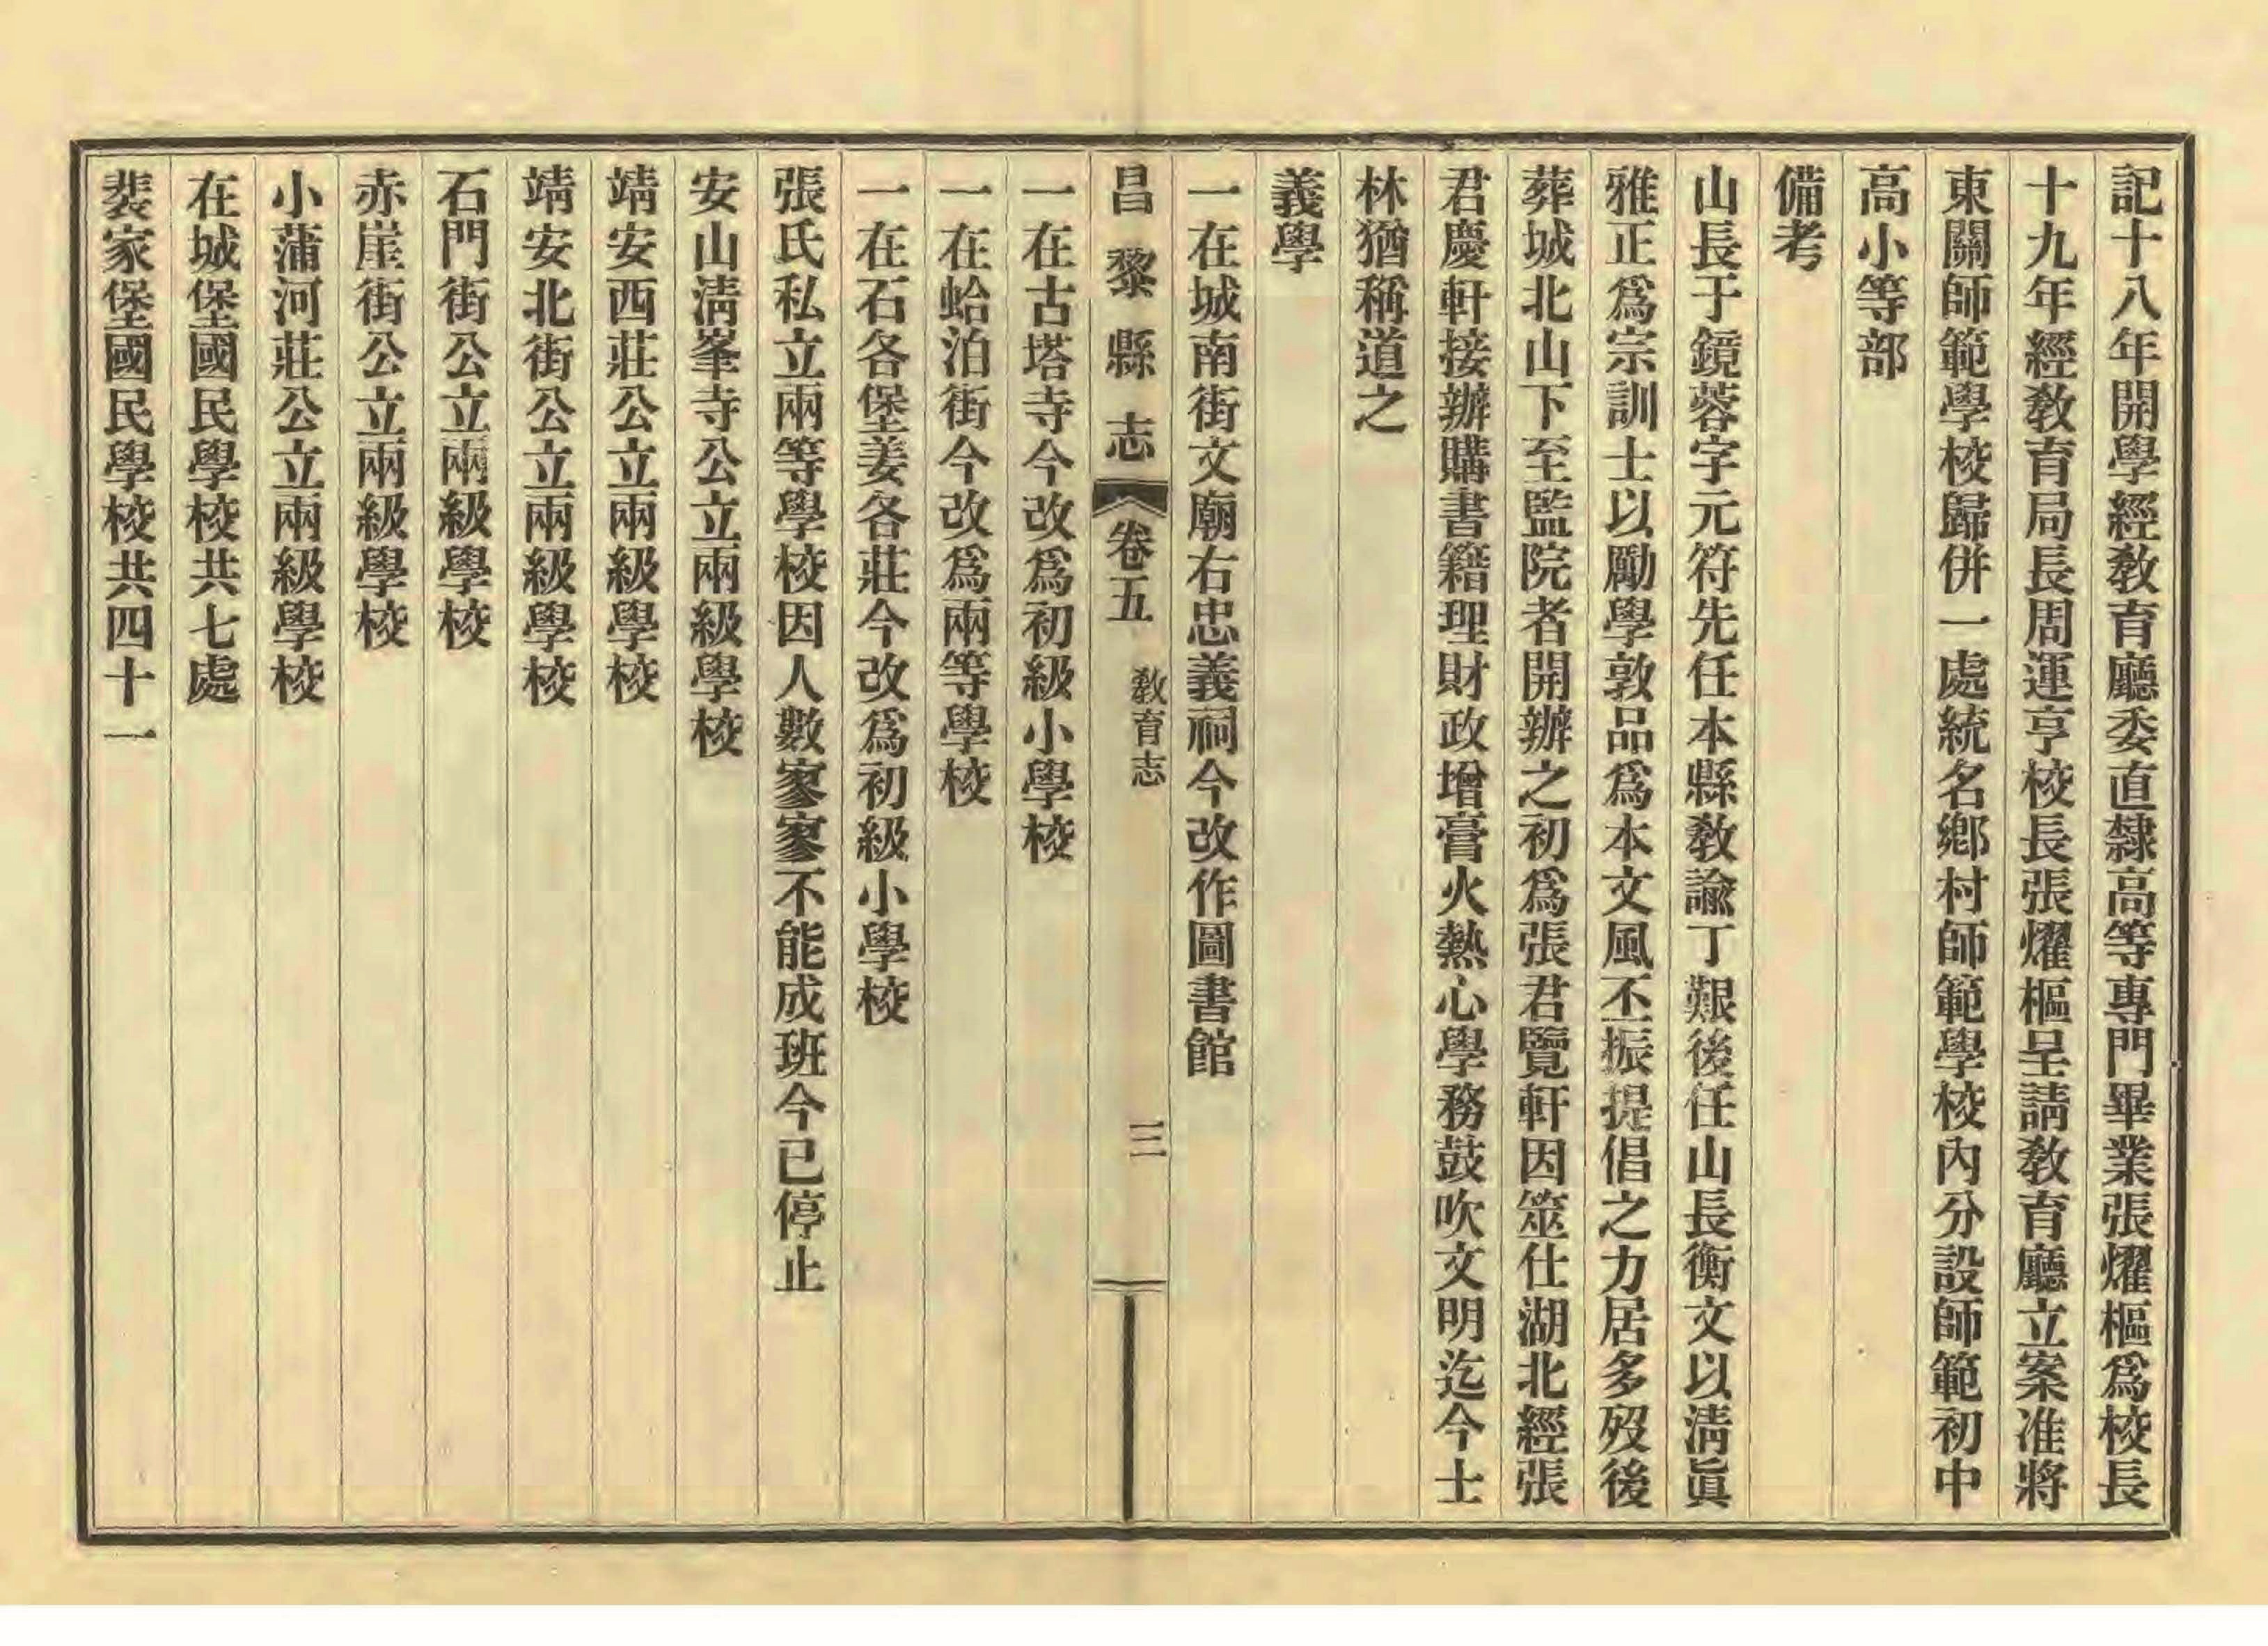 記十八年開學經教育廳委直隸高等專門畢業張燿樞爲校長
十九年經教育局長周運亨校長張燿樞呈請教育廳立案准將
東關師範學校歸併一處統名鄉村師範學校內分設師範初中
高小等部
備考
山長于鏡蓉字元符先任本縣教諭丁艱後任山長衡文以淸眞
雅正爲宗訓士以勵學敦品爲本文風丕振提倡之力居多歿後
葬城北山下至監院者開辦之初爲張君覽軒因筮仕湖北經張
君慶軒接辦購書籍理財政增膏火熱心學務鼓吹文明迄今士
林猶稱道之
義學
一在城南街文廟右忠義祠今改作圖書館
昌黎縣志 卷五 教育志 三
一在古塔寺今改爲初級小學校
一在蛤泊街今改爲兩等學校
一在石各堡姜各莊今改爲初級小學校
張氏私立兩等學校因人數寥寥不能成班今已停止
安山淸峯寺公立兩級學校
靖安西莊公立兩級學校
靖安北街公立兩級學校
石門街公立兩級學校
赤崖街公立兩級學校
小蒲河莊公立兩級學校
在城堡國民學校共七處
裴家堡國民學校共四十一